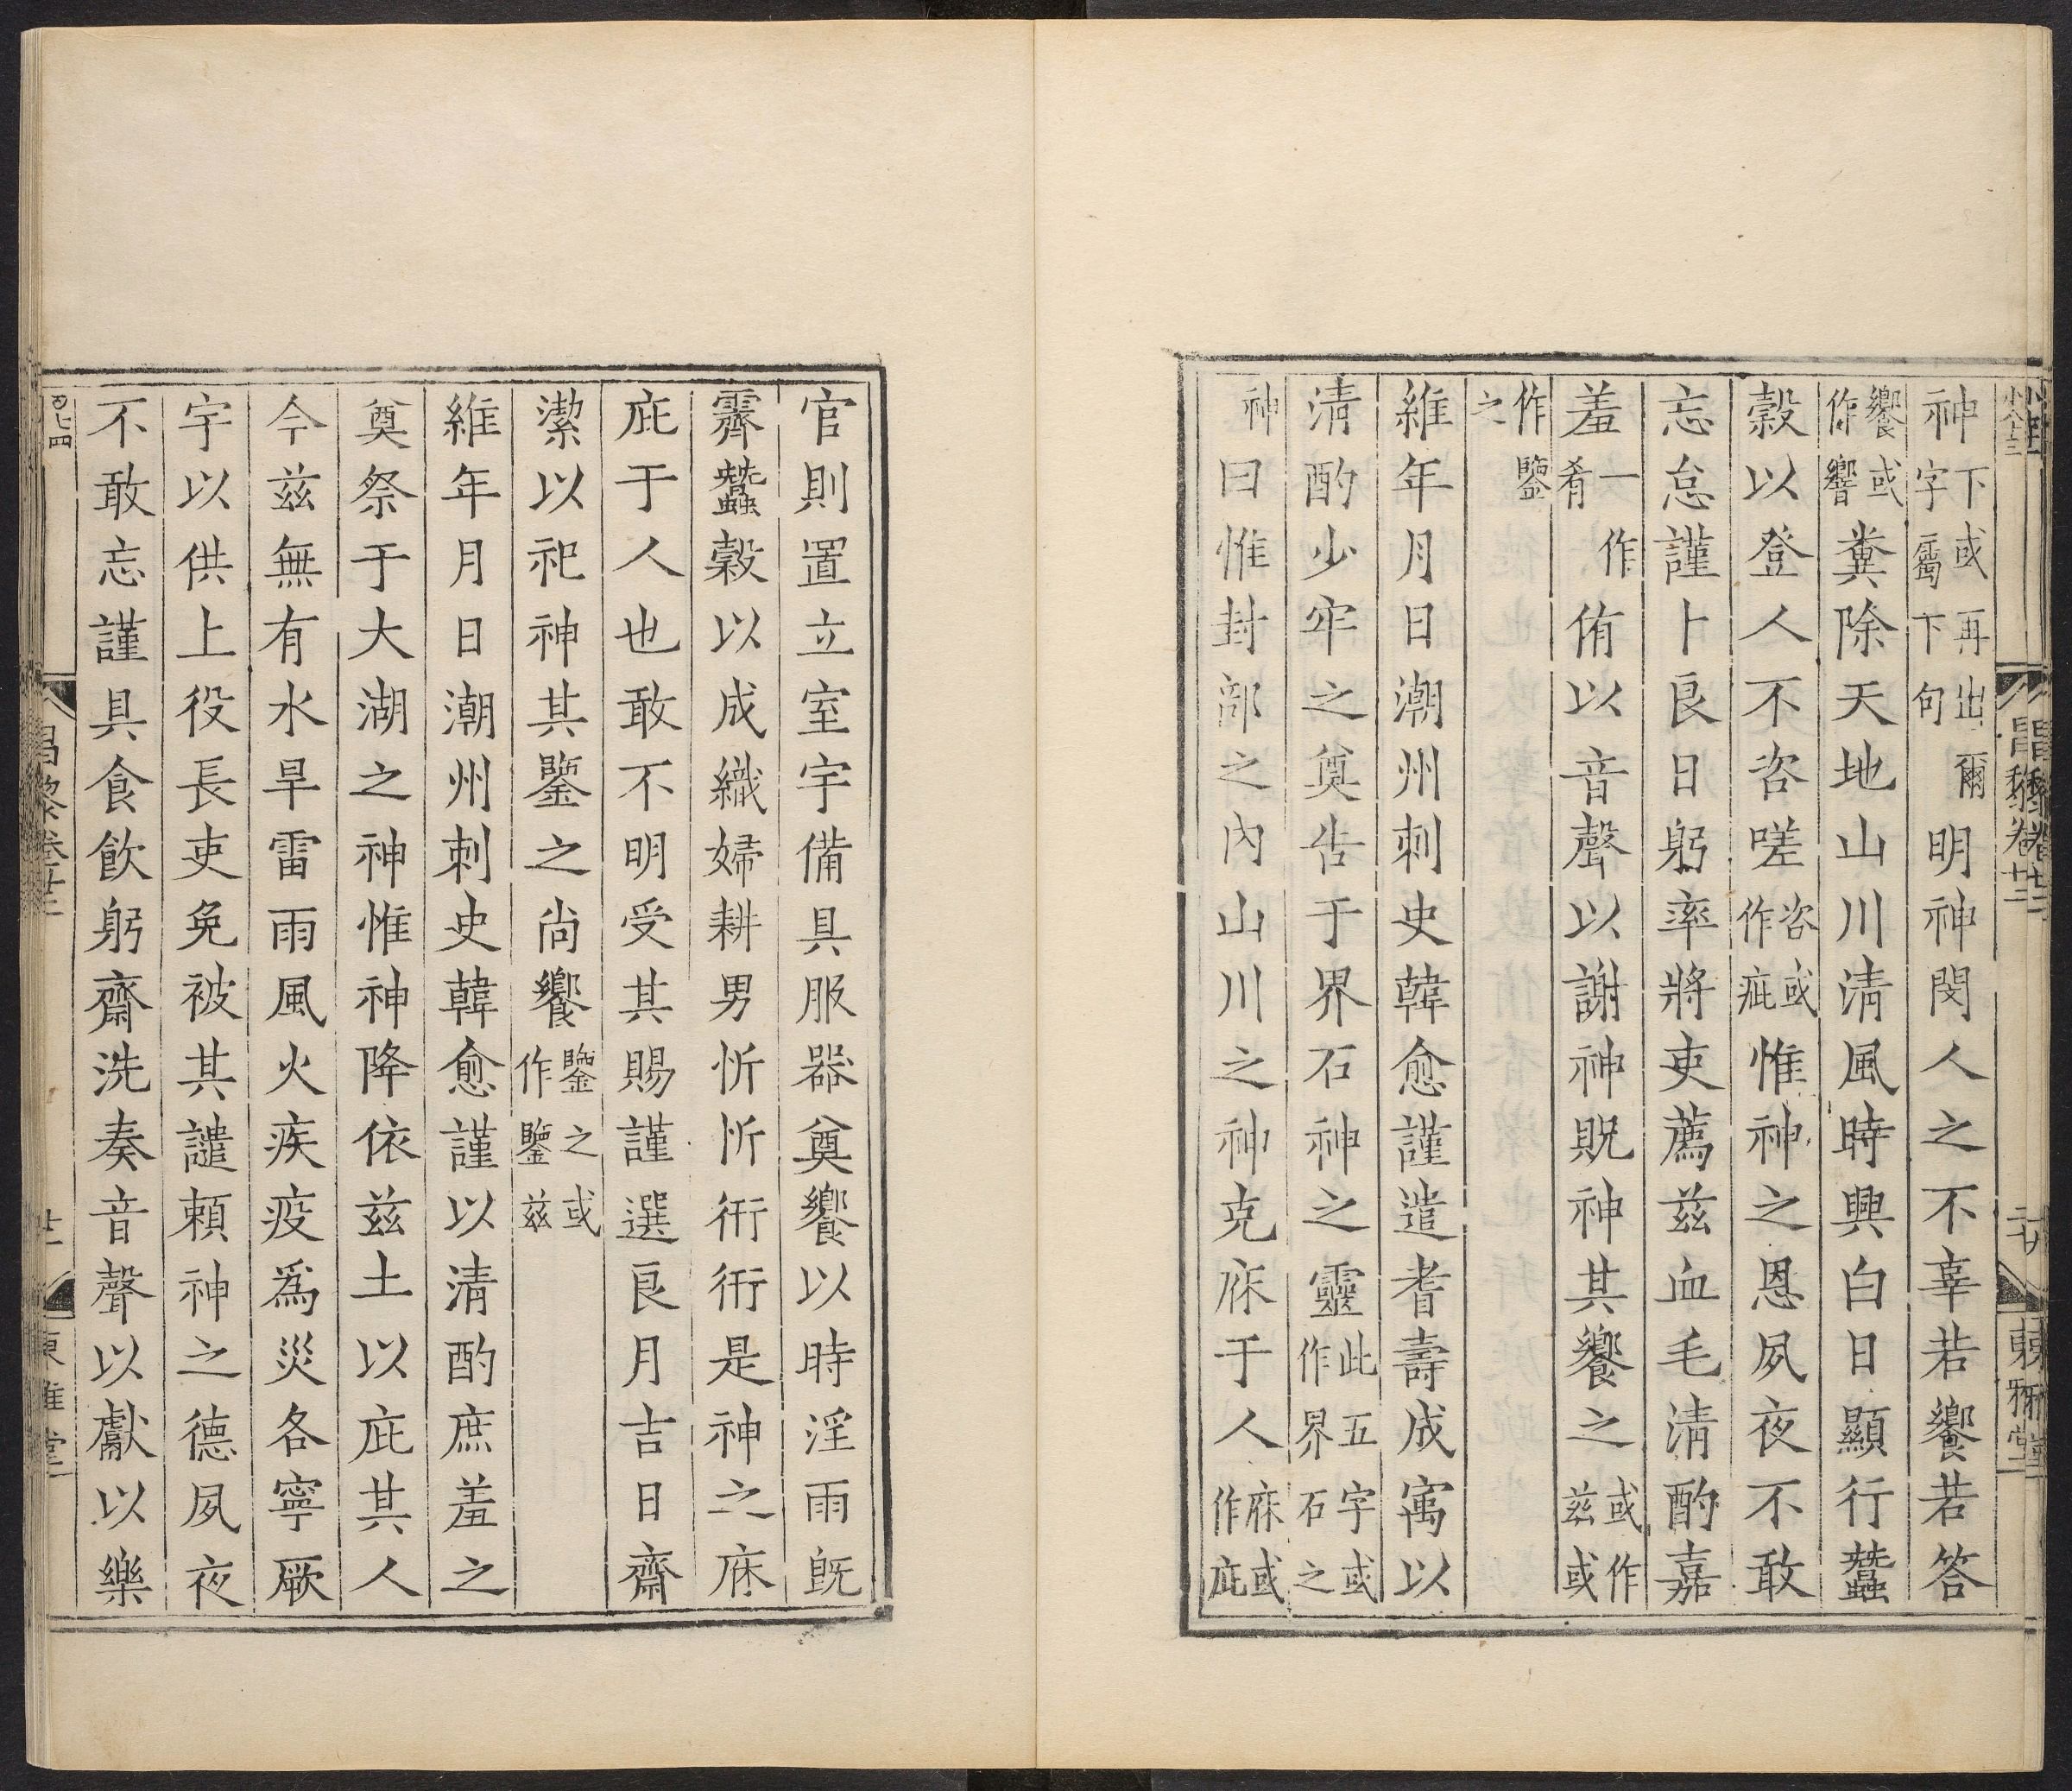 神下或再出爾字屬下句明神閔人之不辜若饗若答
饗或作響糞除天地山川清風時興白日顯行蠶
穀以登人不咨嗟咨或作疵惟神之恩夙夜不敢
忘怠謹卜良日躬率將吏薦兹血毛清酌嘉
羞一作肴侑以音聲以謝神貺神其饗之或作兹或
作鑒之
維年月日潮州刺史韓愈謹遣耆壽成寓以
清酌少牢之奠告于界石神之靈此五字或作界石之
神曰惟封部之內山川之神克庥于人庥或作庇
官則置立室宇備具服器奠饗以時淫雨既
霽蠶穀以成織婦耕男忻忻衎衎是神之庥
庇于人也敢不明受其賜謹選良月吉日齋
潔以祀神其鑒之尚饗鑒之或作鑒兹
維年月日潮州刺史韓愈謹以清酌庶羞之
奠祭于大湖之神惟神降依兹土以庇其人
今兹無有水旱雷雨風火疾疫爲災各寧厥
宇以供上役長吏免被其譴賴神之德夙夜
不敢忘謹具食飲躬齋洗奏音聲以獻以樂